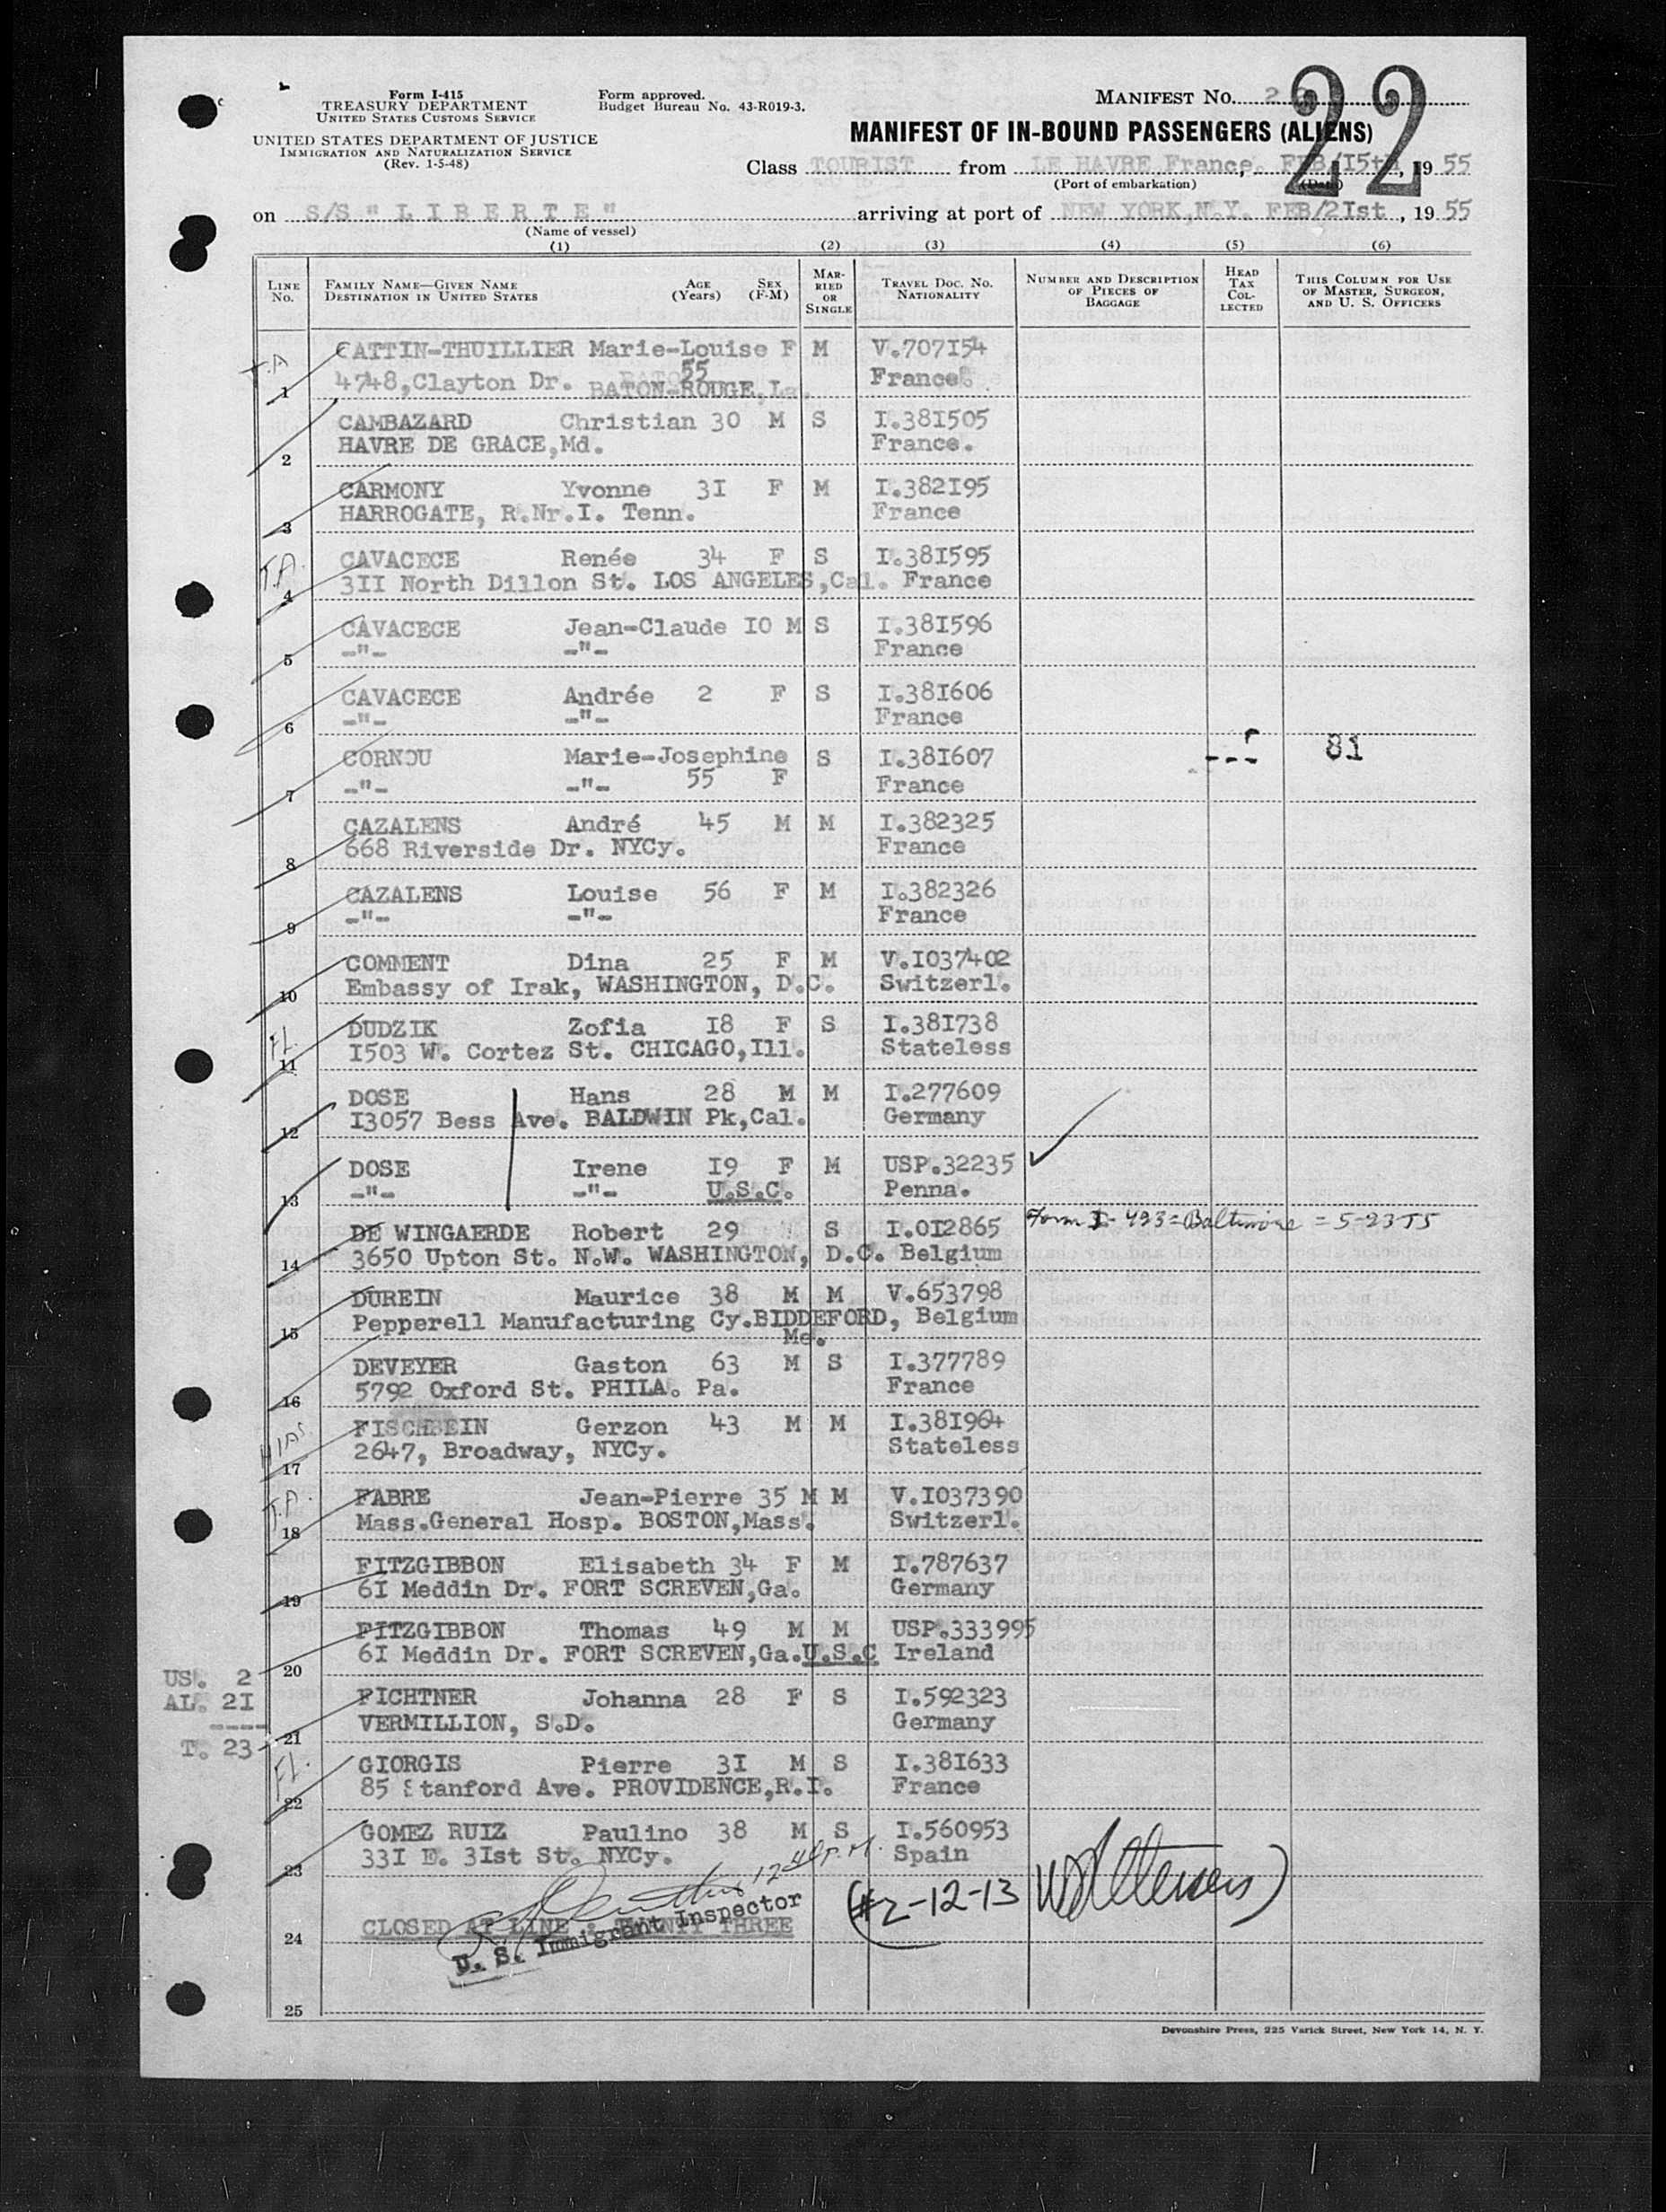 Form I-415
TREASURY DEPARTMENT
UNITED STATES CUSTOMS SERVICE
UNITED STATES DEPARTMENT OF JUSTICE
IMMIGRATION AND NATURALIZATION SERVICE
(Rev. 1-5-48)
Form approved.
Budget Bureau No. 43-R019-3.
MANIFEST NO.
22
MANIFEST OF IN-BOUND PASSENGERS (ALIENS)
Class TOURIST from LE HAVRE, France, FEB/I5th, 19 55
(Port of embarkation) (Date)
on S/S " L I B E R T E " arriving at port of NEW YORK,N.Y. FEB/2Ist, 19 55
(Name of vessel)
(1) (2) (3) (4) (5) (6)
LINE No. FAMILY NAME—GIVEN NAME DESTINATION IN UNITED STATES AGE (Years) SEX (F-M) MARRIED OR SINGLE TRAVEL DOC. NO. NATIONALITY NUMBER AND DESCRIPTION OF PIECES OF BAGGAGE HEAD TAX COLLECTED THIS COLUMN FOR USE OF MASTER, SURGEON, AND U. S. OFFICERS
T.A CATTIN-THUILLIER Marie-Louise F M V.707I54
55
1 4748,Clayton Dr. BATON-ROUGE,La. France.
CAMBAZARD Christian 30 M S I.381505
2 HAVRE DE GRACE,Md. France.
CARMONY Yvonne 3I F M I.382I95
3 HARROGATE, R.Nr.I. Tenn. France
T.A. CAVACECE Renée 34 F S I.381595
4 3II North Dillon St. LOS ANGELES,Cal. France
CAVACECE Jean-Claude IO M S I.381596
5 -"- -"- France
CAVACECE Andrée 2 F S I.381606
6 -"- -"- France
CORNOU Marie-Josephine S I.381607 81
7 -"- -"- 55 F France
CAZALENS André 45 M M I.382325
8 668 Riverside Dr. NYCy. France
CAZALENS Louise 56 F M I.382326
9 -"- -"- France
COMMENT Dina 25 F M V.I037402
10 Embassy of Irak, WASHINGTON, D.C. Switzerl.
FL. DUDZIK Zofia I8 F S I.381738
11 I503 W. Cortez St. CHICAGO,Ill. Stateless
DOSE Hans 28 M M I.277609
12 I3057 Bess Ave. BALDWIN Pk,Cal. Germany
DOSE Irene I9 F M USP.32235
13 -"- -"- U.S.C. Penna.
DE WINGAERDE Robert 29 S I.0I2865 Form I-493=Baltimore = 5-23-55
14 3650 Upton St. N.W. WASHINGTON, D.C. Belgium
DUREIN Maurice 38 M M V.653798
15 Pepperell Manufacturing Cy.BIDDEFORD, Belgium
Me.
DEVEYER Gaston 63 M S I.377789
16 5792 Oxford St. PHILA. Pa. France
HIAS FISCHBEIN Gerzon 43 M M I.381964
17 2647, Broadway, NYCy. Stateless
T.A. FABRE Jean-Pierre 35 M M V.I037390
18 Mass.General Hosp. BOSTON,Mass. Switzerl.
FITZGIBBON Elisabeth 34 F M I.787637
19 6I Meddin Dr. FORT SCREVEN,Ga. Germany
FITZGIBBON Thomas 49 M M USP.333995
20 6I Meddin Dr. FORT SCREVEN,Ga.U.S.C Ireland
US. 2
AL. 2I
----
T. 23
FICHTNER Johanna 28 F S I.592323
21 VERMILLION, S.D. Germany
FL. GIORGIS Pierre 3I M S I.381633
22 85 Stanford Ave. PROVIDENCE,R.I. France
GOMEZ RUIZ Paulino 38 M S I.560953
23 33I E. 3Ist St. NYCy. Spain
(#2-12-13
24 CLOSED AT LINE : TWENTY THREE
U. S. Immigrant Inspector
25
Devonshire Press, 225 Varick Street, New York 14, N. Y.